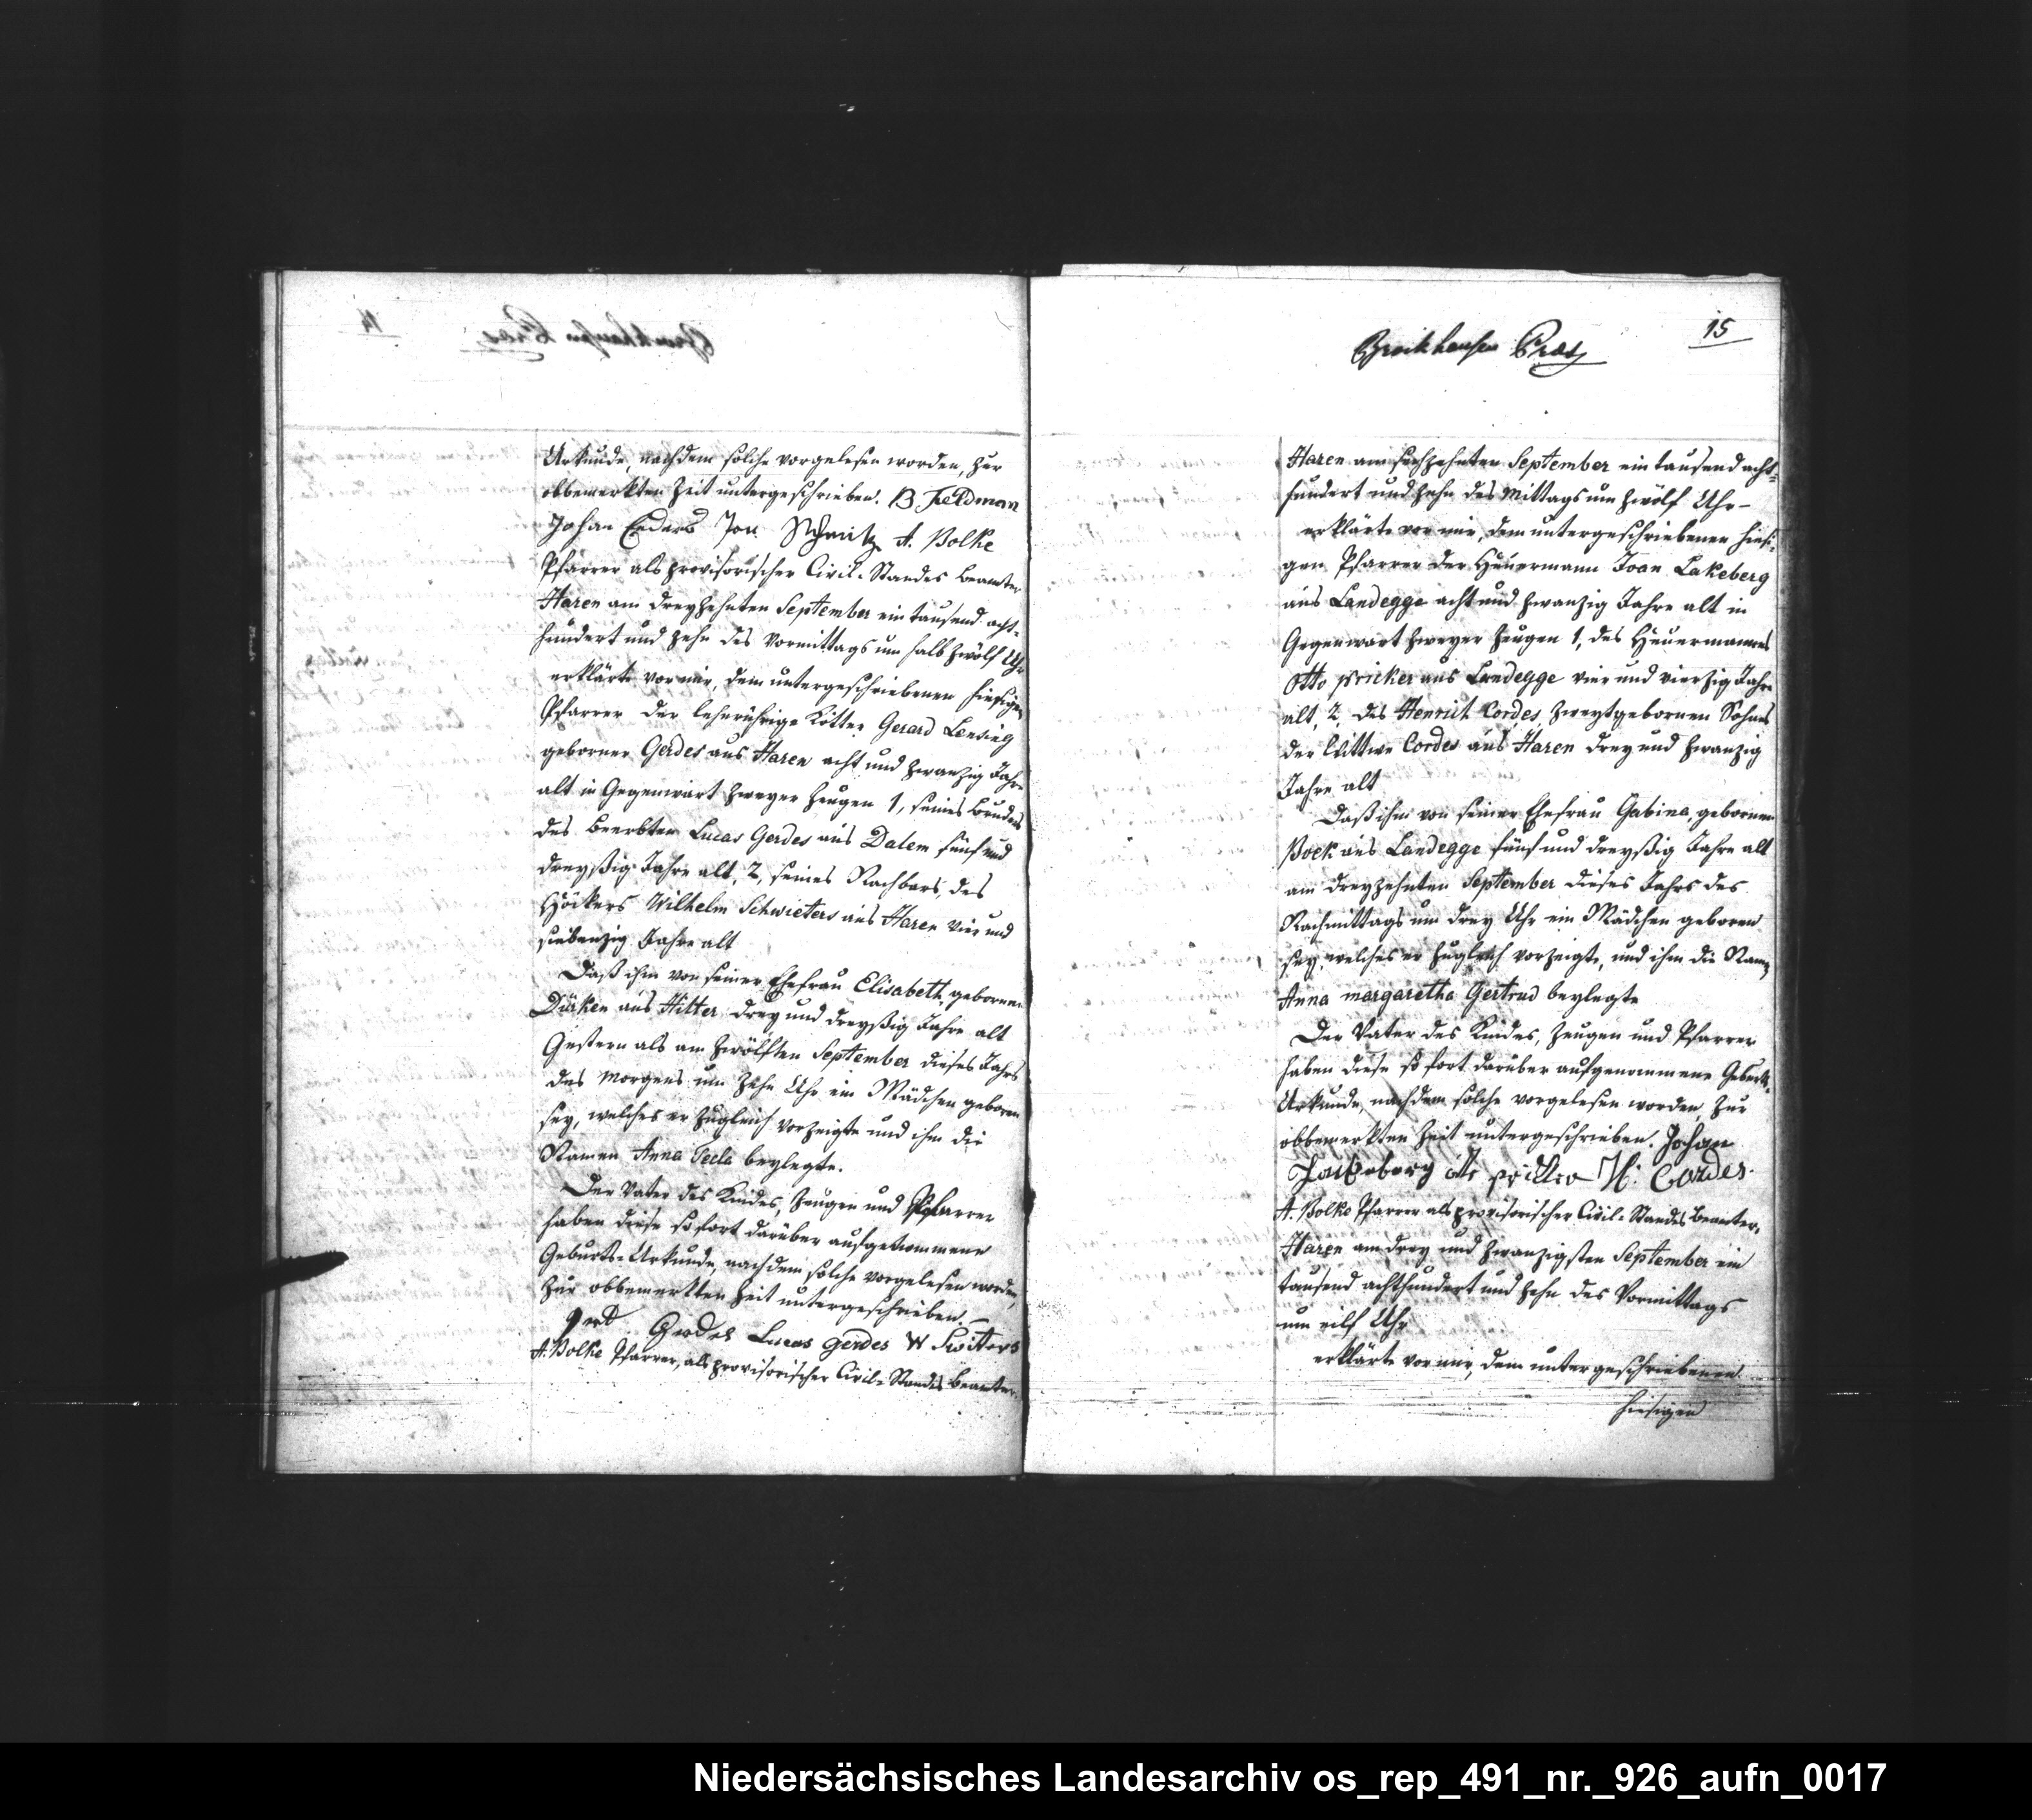 Urkunde, nachdem solche vorgelesen worden, zur
obbemerkten Zeit untergeschrieben. B Feldman
Johan Enders Jon Schmitz A. Bolke
Pfarrer als provisorischer Civil-Standes Beamter
Haren am dreyzehnten September ein tausend acht-
hundert und zehn des Vormittags um halb zwölf Uhr
erklärte vor mir, dem untergeschriebenen hiesigen
Pfarrer der lehnrührige Kötter Gerard Lensing
geborner Gerdes aus Haren acht und zwanzig Jahre
alt in Gegenwart zweyer Zeugen 1, seines Bruders
des Beerbten Lucas Gerdes aus Dalem fünf und
dreyßig Jahre alt, 2, seines Nachbars, des
Höckers Wilhelm Schwieters aus Haren vier und
siebenzig Jahre alt
Daß ihm von seiner Ehefrau Elisabeth, gebornen
Düsken aus Hilter drey und dreyßig Jahre alt
Gestern als am zwölften September dieses Jahrs
des Morgens um zehn Uhr ein Mädchen geboren
sey, welches er zugleich vorzeigte und ihm die
Namen Anna Tecla beylegte.
Der Vater des Kindes, Zeugen und Pfarrer
haben diese sofort darüber aufgenommene
Geburts-Urkunde, nachdem solche vorgelesen worden,
zur obbemerkten Zeit untergeschrieben.
gerd Gerdes Lucas Gerdes W Switers
A. Bolke Pfarrer, als provisorischer Civil-Standes Beamter.
15
Brockhausen Präs
Haren am sechzehnten September ein tausend acht-
hundert und zehn des Mittags um zwölf Uhr
erklärte vor mir, dem untergeschriebenen hiesi-
gen Pfarrer der Heuermann Joan Lakeberg
aus Landegge acht und zwanzig Jahre alt in
Gegenwart zweyer Zeugen 1, des Heuermannes
Otto Pricker aus Landegge vier und vierzig Jahre
alt, 2, des Henrich Cordes, zweytgebornen Sohnes
der Wittwe Cordes aus Haren drey und zwanzig
Jahre alt
Daß ihm von seiner Ehefrau Gabina, gebornen
Boek aus Landegge fünf und dreyßig Jahre alt
am dreyzehnten September dieses Jahrs des
Nachmittags um drey Uhr ein Mädchen geboren
sey, welches er zugleich vorzeigte, und ihm die Namen
Anna margaretha Gertrud beylegte
Der Vater des Kindes, Zeugen und Pfarrer
haben diese so fort darüber aufgenommene Geburts-
Urkunde, nachdem solche vorgelesen worden, zur
obbemerkten Zeit untergeschrieben. Johan
H: Cordes.
A. Bolke Pfarrer als provisorischer Civil-Standes Beamter,
Haren am drey und zwanzigsten September ein
tausend achthundert und zehn des Vormittags
um eilf Uhr
erklärte vor mir, dem untergeschriebenen
hiesigen
Niedersächsisches Landesarchiv os_rep_491_nr._926_aufn_0017